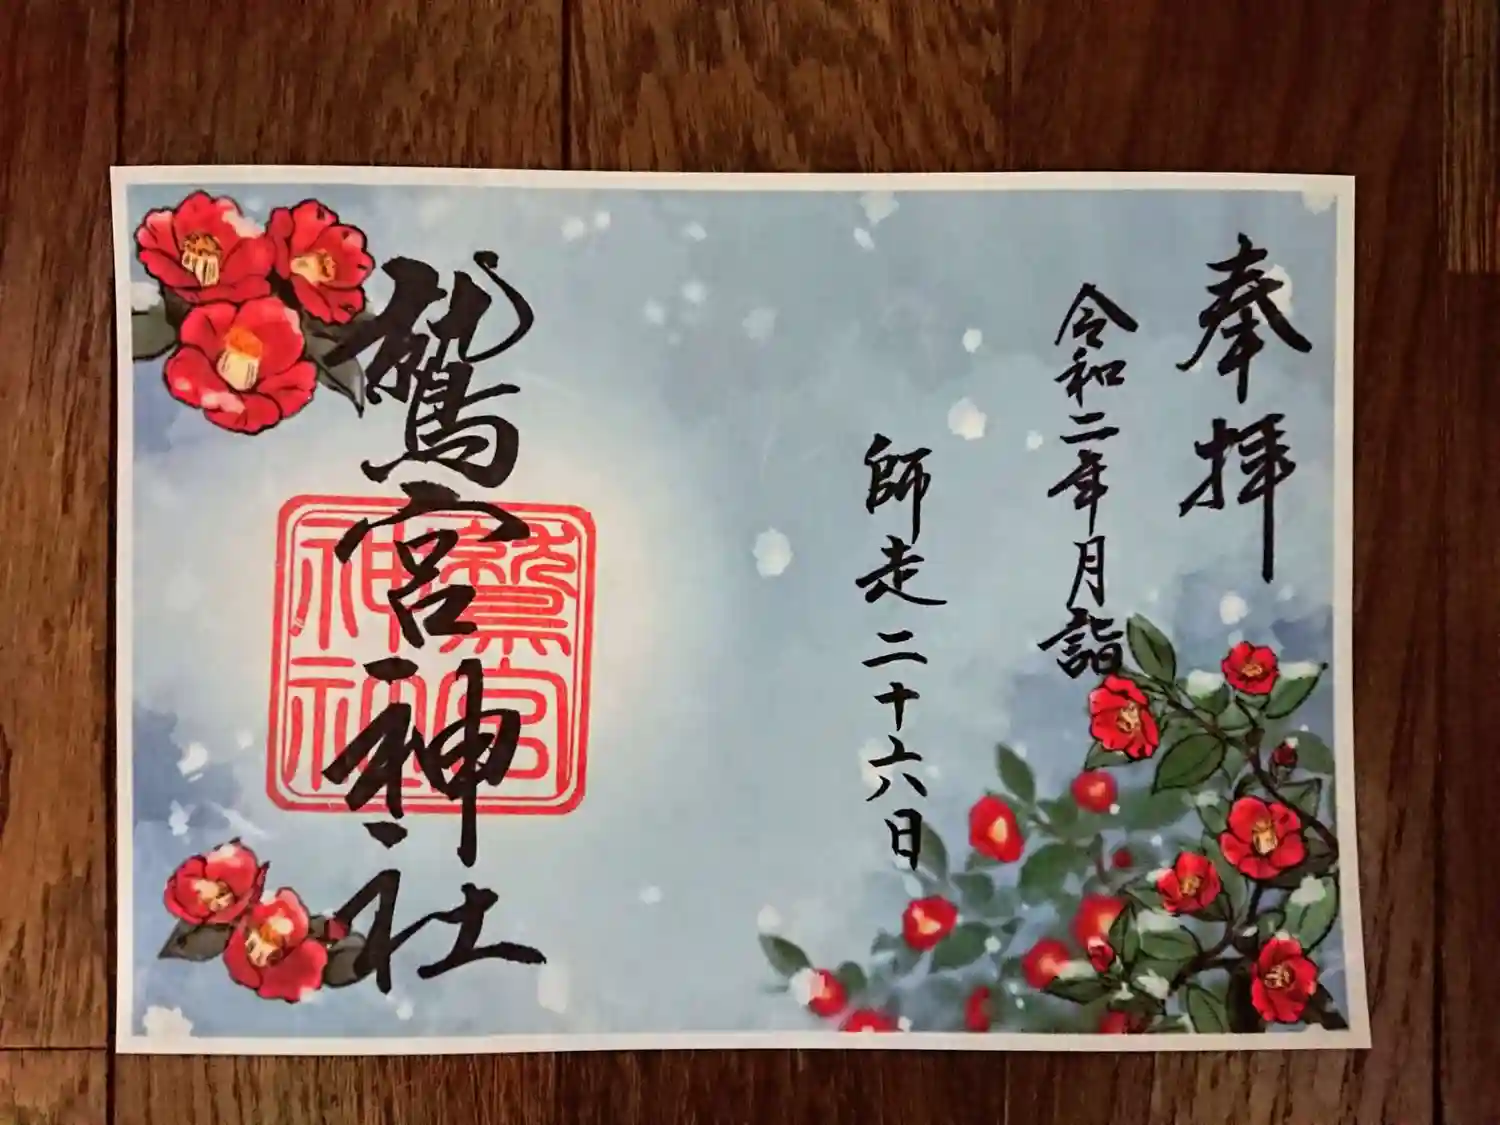 奉拝
令和二年月詣
師走二十六日
鷲宮神社
鷲宮神社